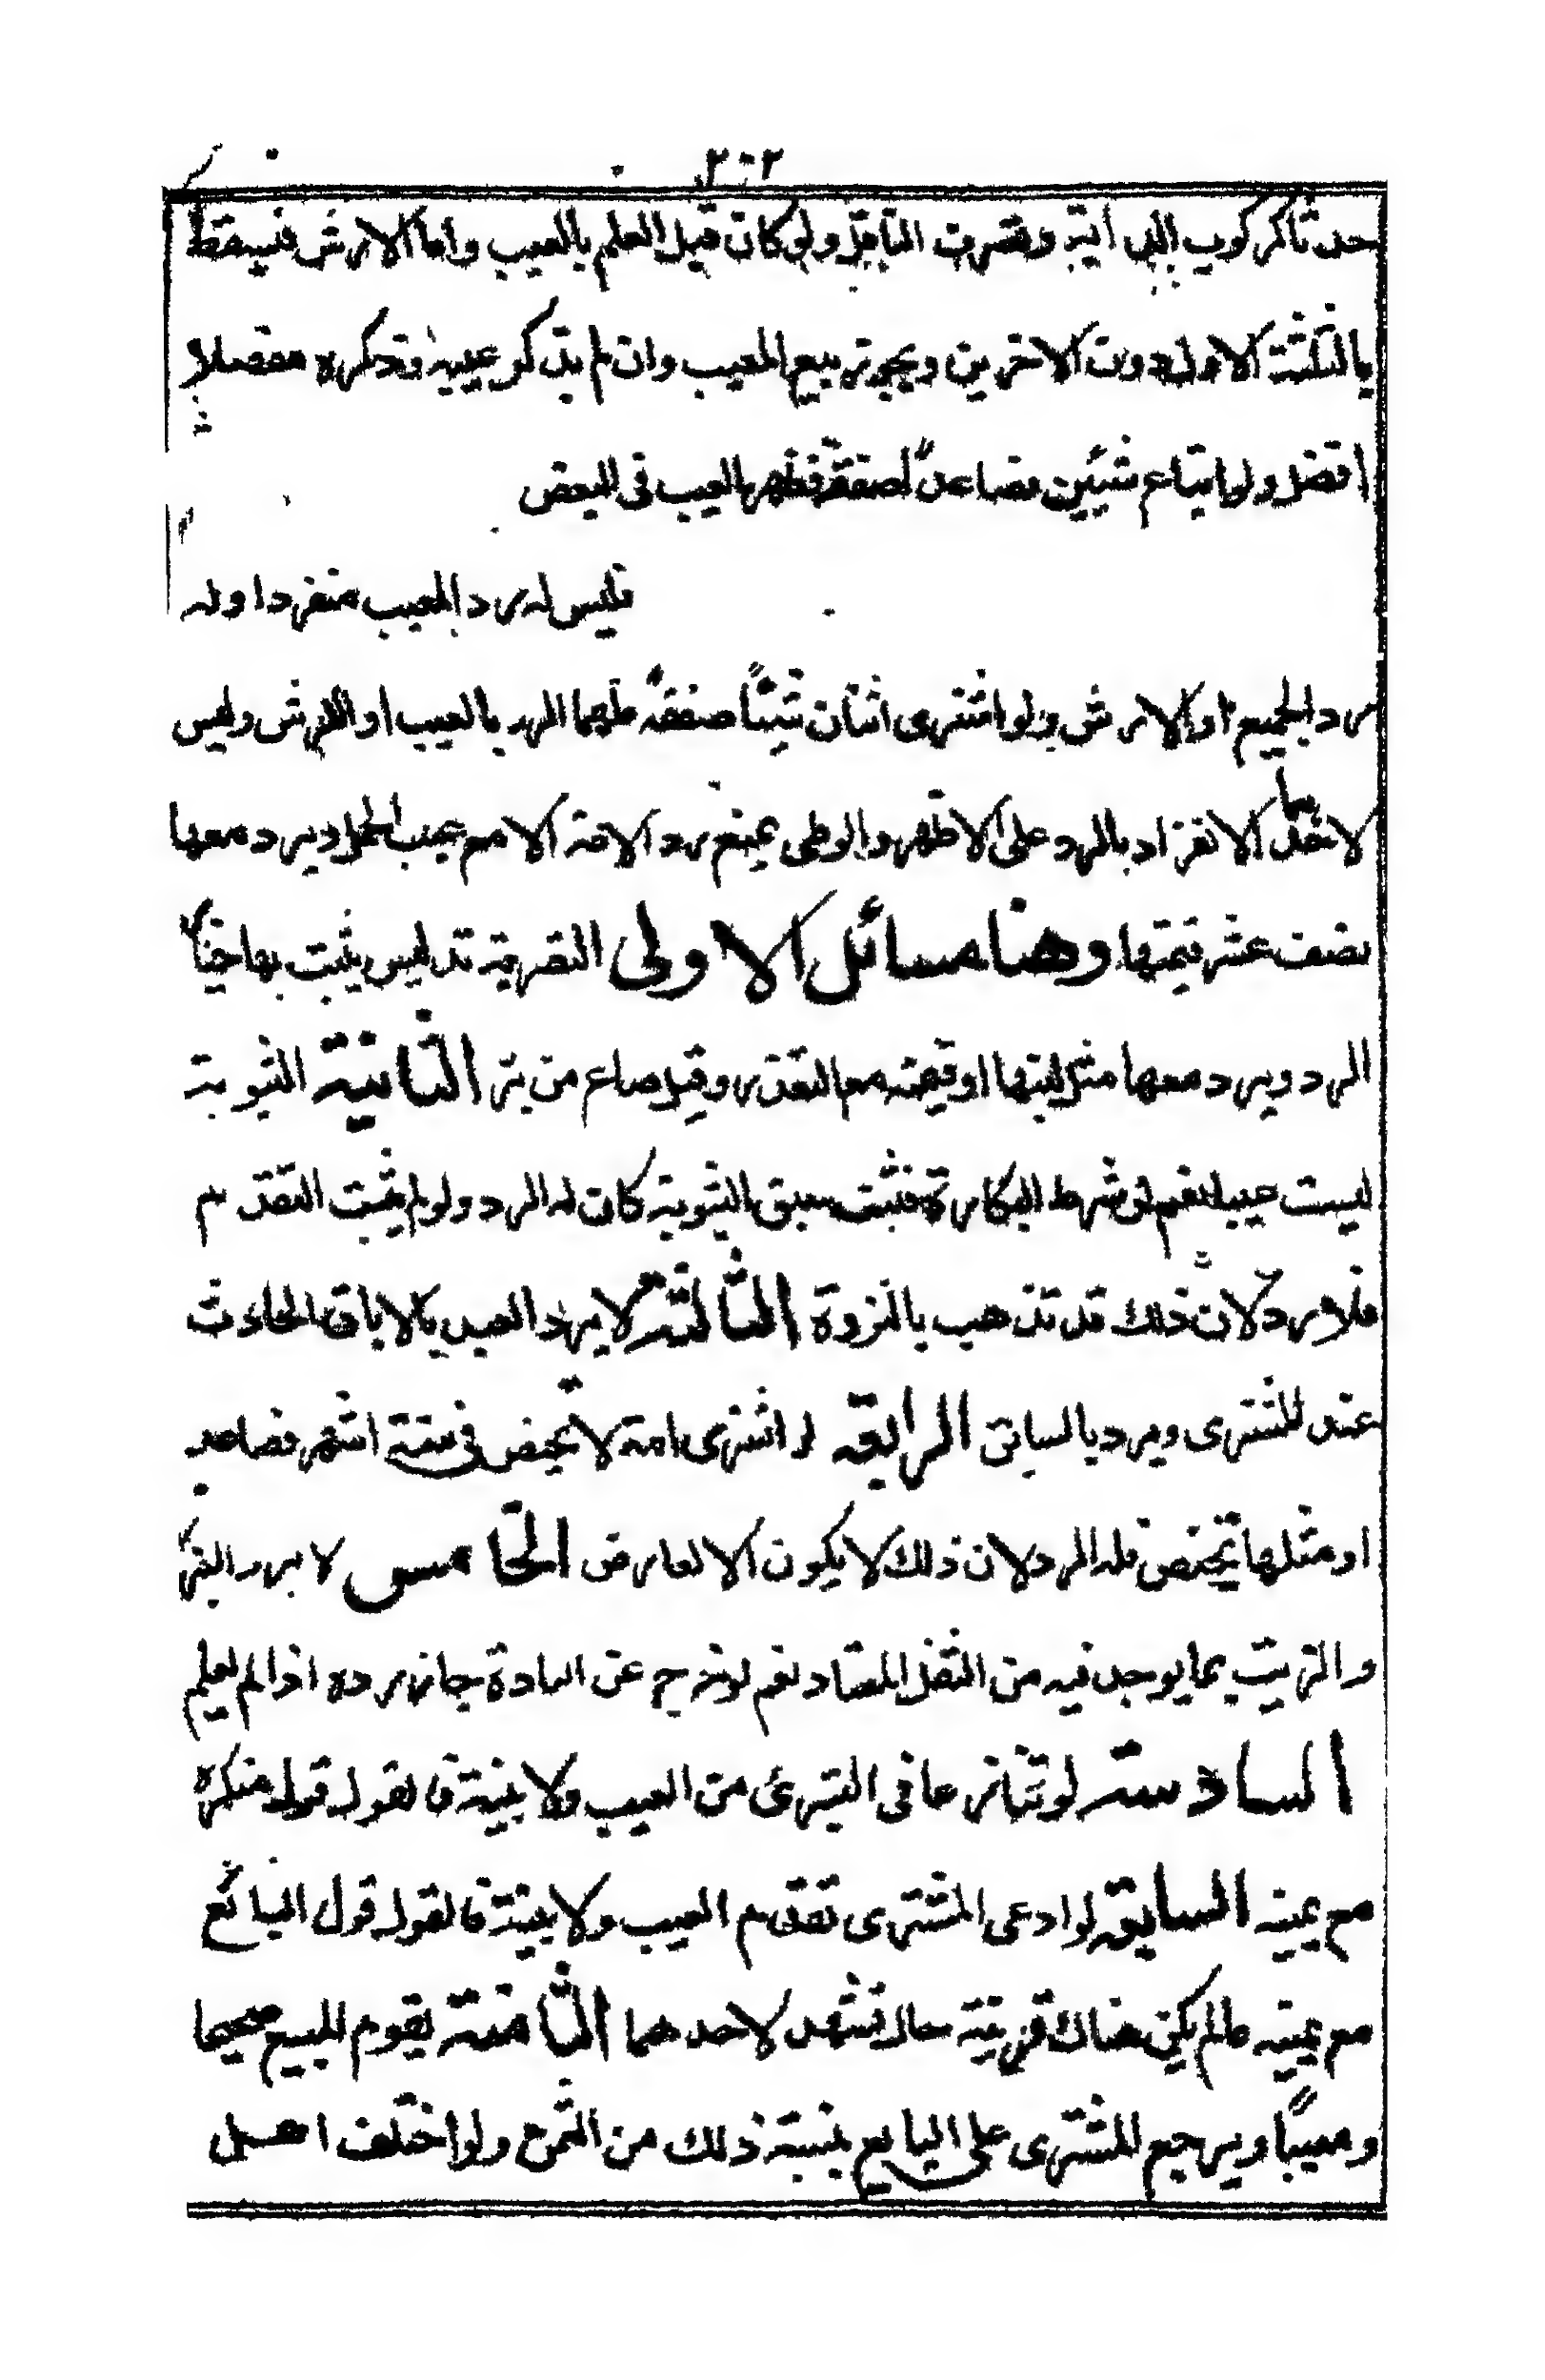 ٢٠٢
حدثا كركوب الدابة وتصرف الناقل ولو كان قبل العلم بالعيب واما الارش فيسقط
بالثلثة الاول دون الاخرين ويجوز بيع المعيب وان لم يذكر عيبه وذكره مفصلا
افضل ولو ابتاع شيئين فصاعدًا صفقة فظهر العيب فى البعض
فليس له رد المعيب منفردا وله
رد الجميع او الارش ولو اشترى اثنان شيئًا صفقة فلهما الرد بالعيب او الارش وليس
لاحدهما الانفراد بالرد على الاظهر والوطى يمنع رد الامة الا مع عيب الحبل ويرد معها
نصف عشر قيمتها وهنا مسائل الاولى التصرية تدليس يثبت بها خيار
الرد ويرد معها مثل لبنها او قيمته مع التعذر وقيل صاع من بر الثانية الثيوبة
ليست عيبا نعم لو شرط البكارة فثبت سبق الثيوبة كان له الرد ولو لم يثبت التقدم
فلا رد لان ذلك قد تذهب بالنزوة الثالثة لا يرد العبد بالاباق الحادث
عند المشترى ويرد بالسابق الرابعة لو اشترى امة لا تحيض فى ستة اشهر فصاعدا
او مثلها تحيض فله الرد لان ذلك لا يكون الا لعارض الخامس لا يرد البزر
والزيت بما يوجد فيه من الثفل المعتاد نعم لو خرج عن العادة جاز رده اذا لم يعلم
السادسة لو تنازعا فى التبرئ من العيب ولا بينة فالقول قول منكره
مع يمينه السابعة لو ادعى المشترى تقدم العيب ولا بينة فالقول قول البائع
مع يمينه ما لم يكن هناك قرينة حال تشهد لاحدهما الثامنة يقوم المبيع صحيحا
ومعيبًا ويرجع المشترى على البايع بنسبة ذلك من الثمن ولو اختلف اهل